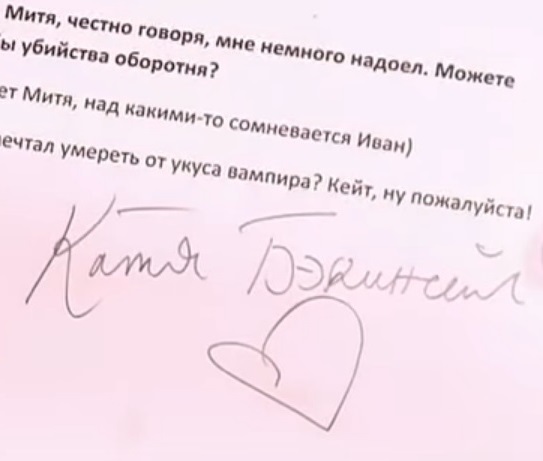 Митя, честно говоря, мне немного надоел. Можете
ы убийства оборотня?
ет Митя, над какими-то сомневается Иван)
ечтал умереть от укуса вампира? Кейт, ну пожалуйста!
Катя Бэкинсейл